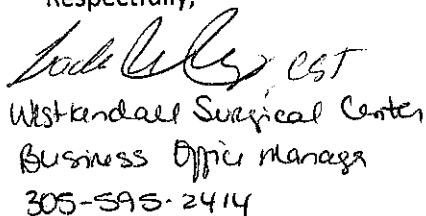 Respectfully,
CST
West Kendall Surgical Center
Business Office Manager
305-595-2414